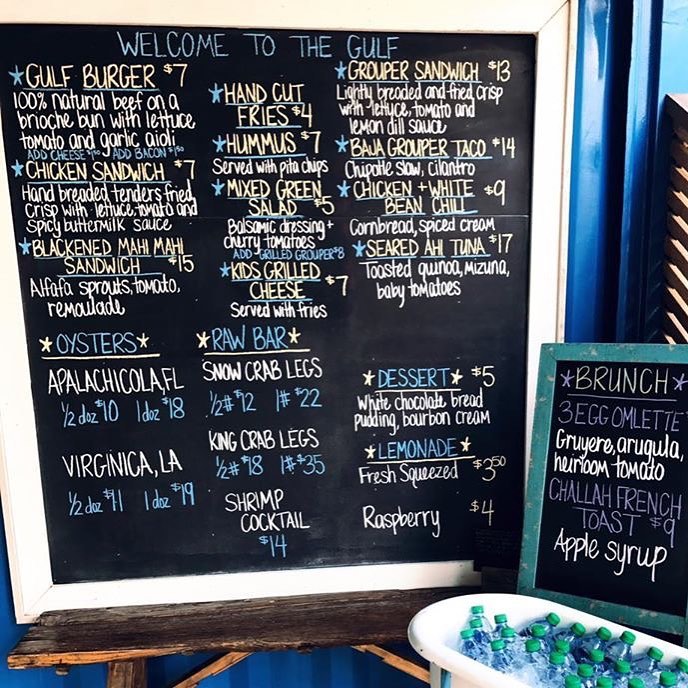 WELCOME TO THE GULF
★GULF BURGER $7
100% natural beef on a
brioche bun with lettuce
tomato and garlic aioli
ADD CHEESE $1.50 ADD BACON $1.50
★CHICKEN SANDWICH $7
Hand breaded tenders fried
crisp with lettuce, tomato and
spicy buttermilk sauce
★BLACKENED MAHI MAHI
SANDWICH $15
Alfafa sprouts, tomato,
remoulade
★HAND CUT
FRIES $4
★HUMMUS $7
Served with pita chips
★MIXED GREEN
SALAD $5
Balsamic dressing +
cherry tomatoes
ADD GRILLED GROUPER $8
★KIDS GRILLED
CHEESE $7
Served with fries
★GROUPER SANDWICH $13
Lightly breaded and fried crisp
with lettuce, tomato and
lemon dill sauce
★BAJA GROUPER TACO $14
Chipotle slaw, cilantro
★CHICKEN + WHITE
BEAN CHILI $9
Cornbread, spiced cream
★SEARED AHI TUNA $17
Toasted quinoa, mizuna,
baby tomatoes
★OYSTERS★
APALACHICOLA, FL
1/2 doz $10 1 doz $18
VIRGINICA, LA
1/2 doz $11 1 doz $19
★RAW BAR★
SNOW CRAB LEGS
1/2# $12 1# $22
KING CRAB LEGS
1/2# $18 1# $35
SHRIMP
COCKTAIL
$14
★DESSERT★ $5
White chocolate bread
pudding, bourbon cream
★LEMONADE★
Fresh Squeezed $3.50
Raspberry $4
★BRUNCH★
3 EGG OMLETTE
Gruyere, arugula,
heirloom tomato
CHALLAH FRENCH
TOAST $9
Apple syrup